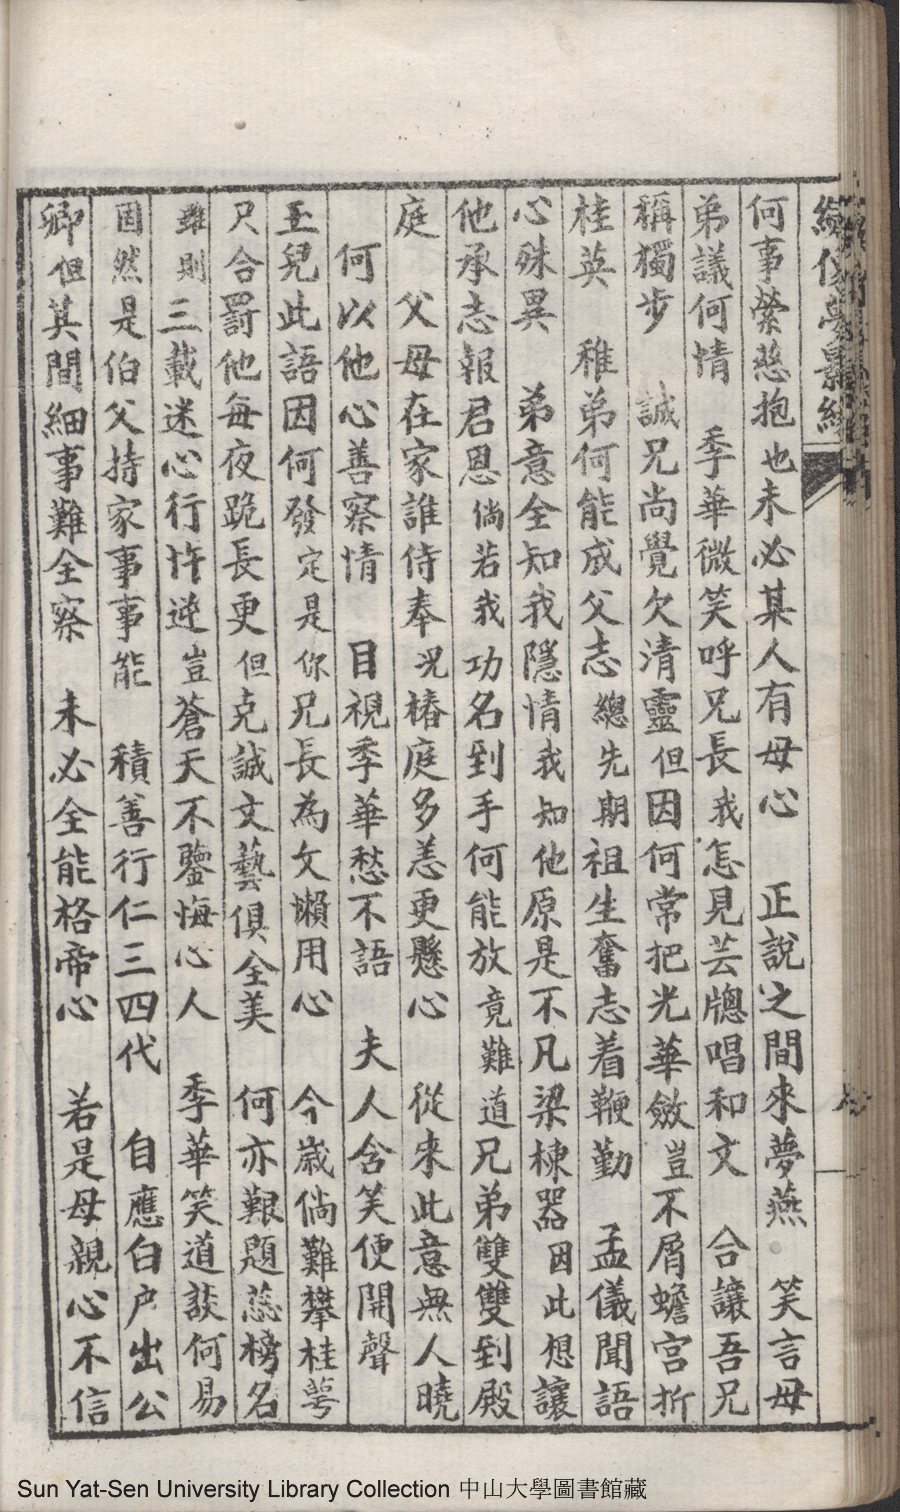 何事縈慈抱也未必某人有母心 正說之間來夢燕 笑言母
弟議何情 季華微笑呼兄長我怎見芸牕唱和文 合讓吾兄
稱獨步 誠兄尚覺欠清靈但因何常把光華斂豈不屑蟾宮折
桂英 稚弟何能成父志總先期祖生奮志着鞭勤 孟儀聞語
心殊異 弟意全知我隱情我知他原是不凡梁棟器因此想讓
他承志報君恩倘若我功名到手何能放竟難道兄弟雙雙到殿
庭 父母在家誰侍奉况椿庭多恙更懸心 從來此意無人曉
何以他心善察情 目視季華愁不語 夫人含笑便開聲
玉兒此語因何發定是你兄長為文懶用心 今歲倘難攀桂萼
只合罰他每夜跪長更但克誠文藝俱全美 何亦艱題蕊榜名
雖則三載迷心行忤逆豈蒼天不鑒悔心人 季華笑道談何易
固然是伯父持家事事能 積善行仁三四代 自應白户出公
卿但其間細事難全察 未必全能格帝心 若是母親心不信
中山大學圖書館藏
Sun Yat-Sen University Library Collection